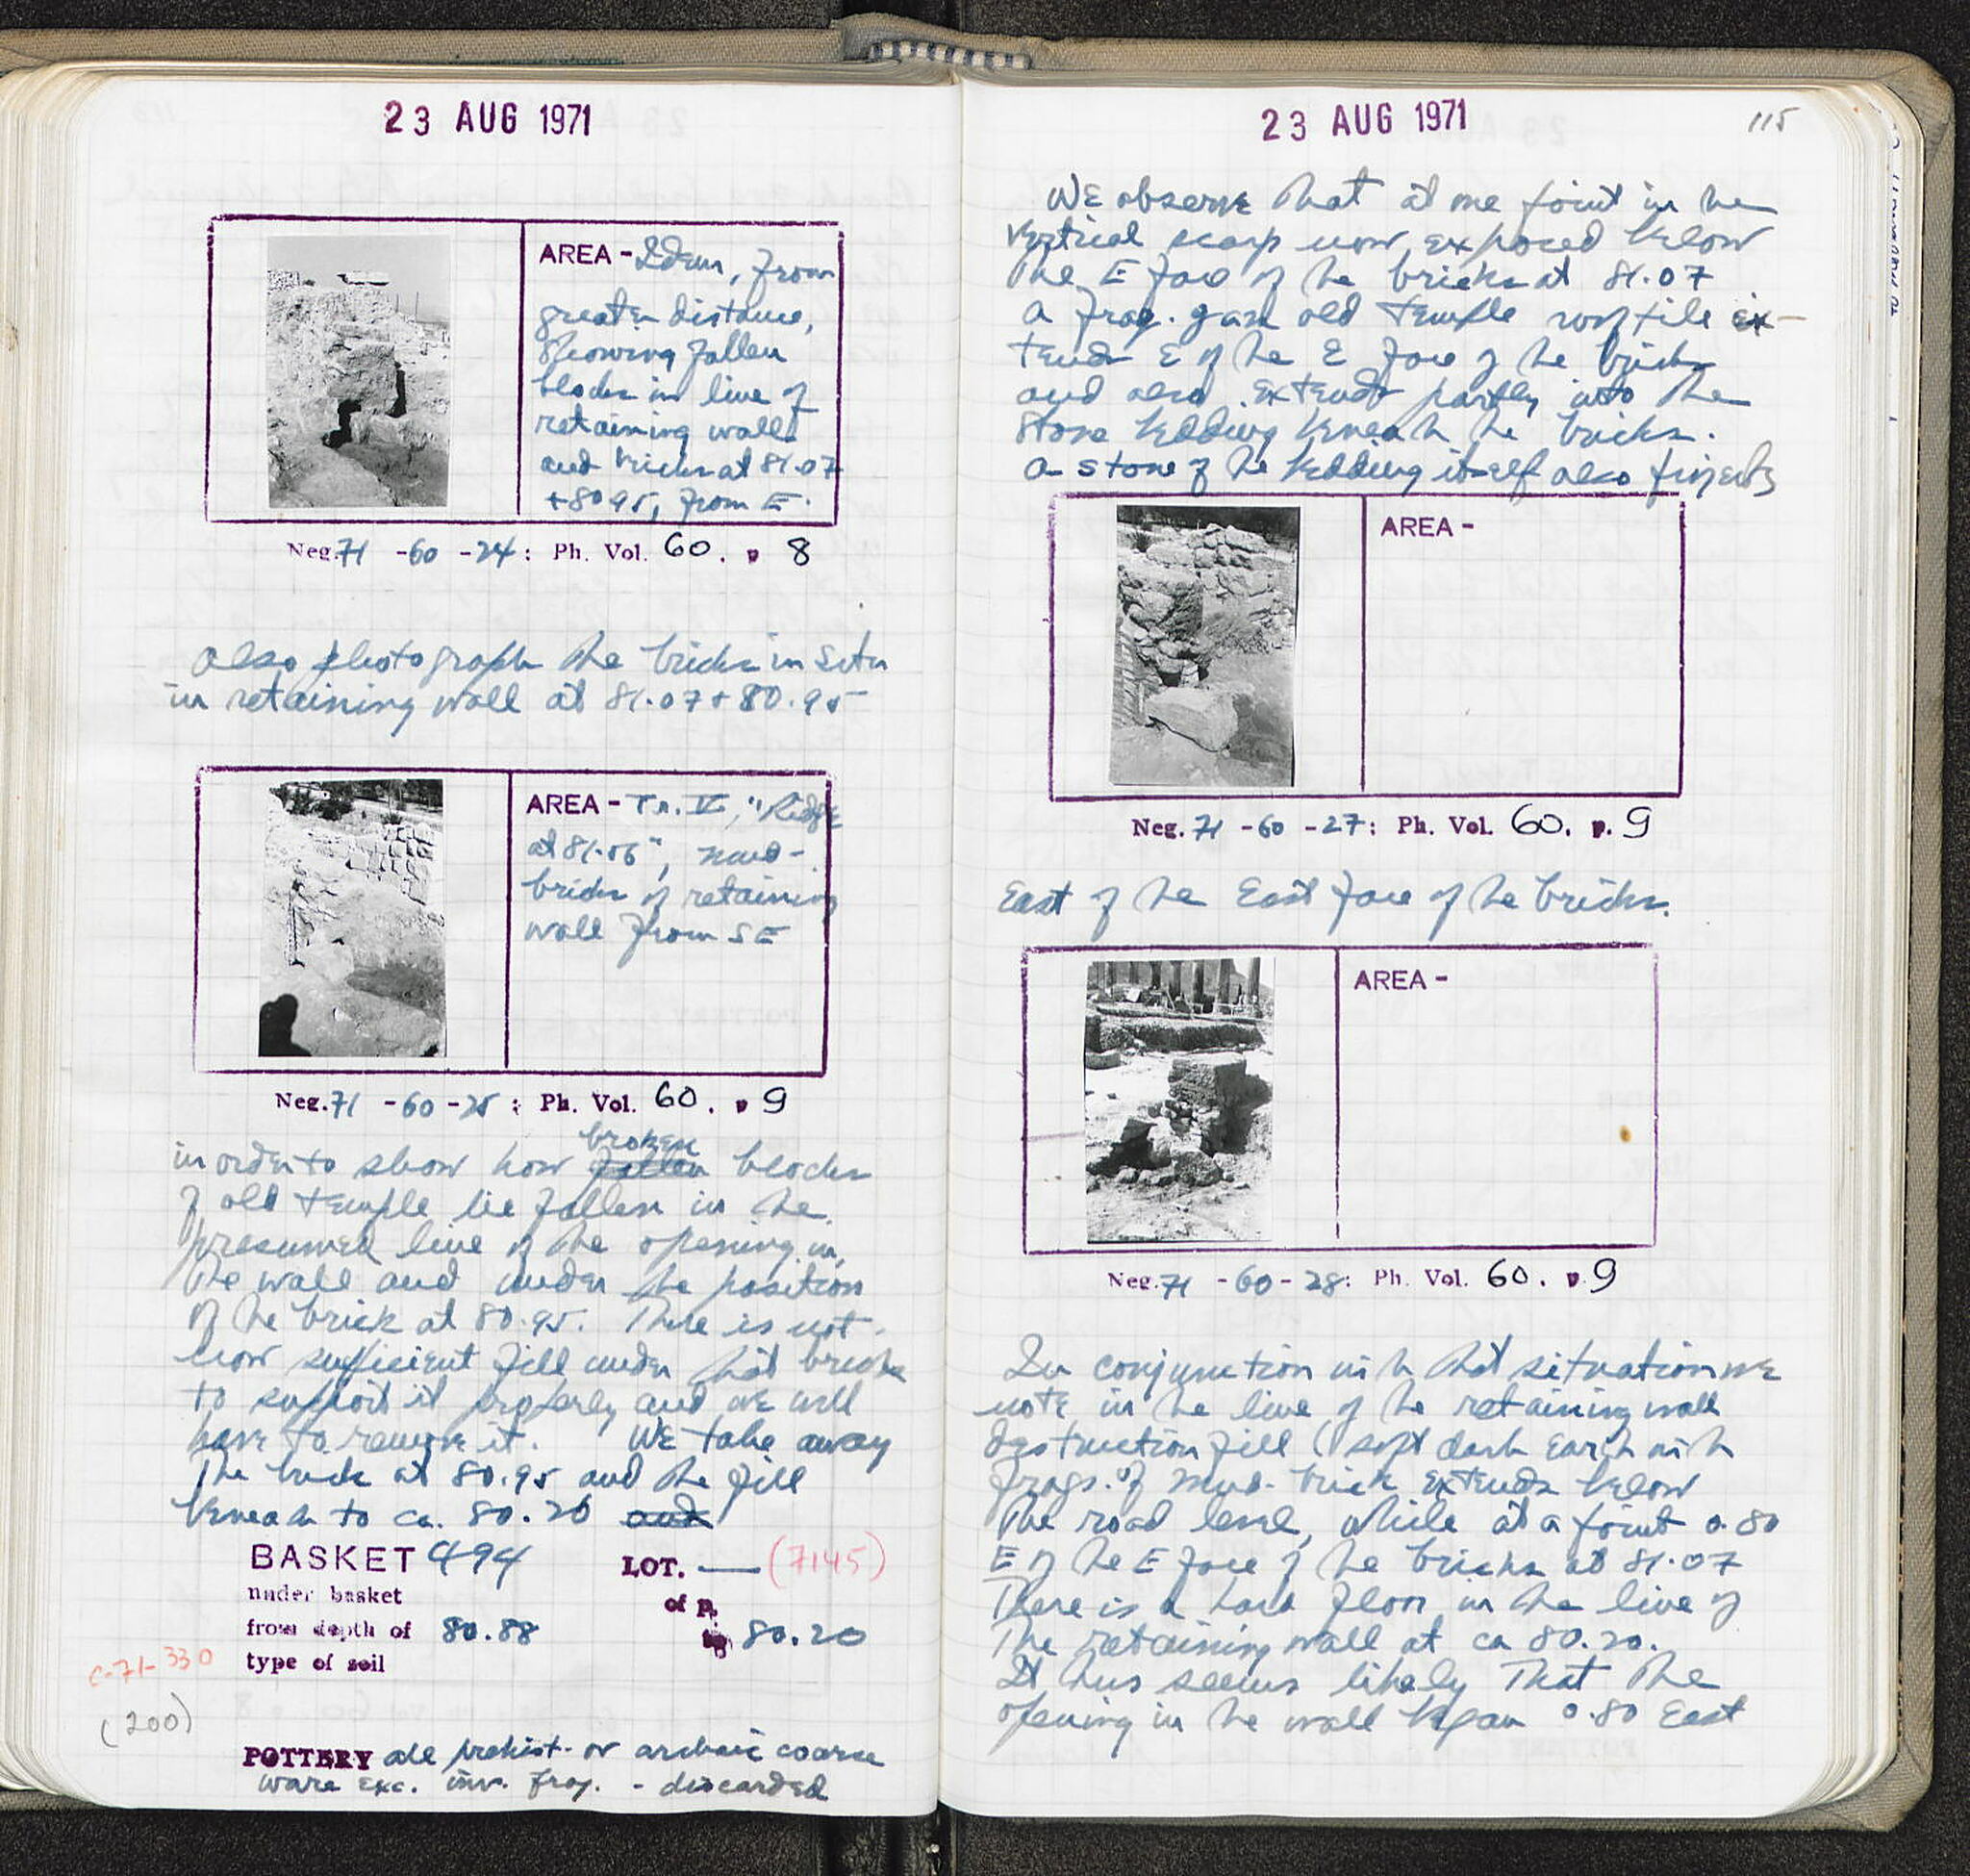 23 AUG 1971
AREA - Idem, from
greater distance,
showing fallen
blocks in line of
retaining wall
and bricks at 81.07
+ 80.95, from E.
Neg. 71 - 60 - 24 : Ph. Vol. 60. p 8
Also photograph the bricks in situ
in retaining wall at 81.07 + 80.95
AREA - Tr. V, "Ridge
at 81.06", mud-
bricks of retaining
wall from SE
Neg. 71 - 60 - 25 ; Ph. Vol. 60. p 9
broken
in order to show how fallen blocks
of old temple lie fallen in the
presumed line of the opening in
the wall and under the position
of the brick at 80.95. There is not
now sufficient fill under that brick
to support it properly and we will
have to remove it. We take away
the brick at 80.95 and the fill
beneath to ca. 80.20 and
BASKET 494 LOT. — (7145)
under basket of p.
from depth of 80.88 80.20
type of soil
C-71-330
(200)
POTTERY all prehist. or archaic coarse
ware exc. inv. frag. - discarded
23 AUG 1971
115
We observe that at one point in the
vertical scarp now exposed below
the E face of the bricks at 81.07
a frag. of an old temple rooftile ex-
tends E of the E face of the bricks
and also extends partly into the
stone bedding beneath the bricks.
A stone of the bedding itself also projects
AREA -
Neg. 71 - 60 - 27 ; Ph. Vol. 60. p. 9
East of the East face of the bricks.
AREA -
Neg. 71 - 60 - 28 : Ph. Vol. 60. p. 9
In conjunction with that situation we
note in the line of the retaining wall
destruction fill (soft dark earth with
frags. of mud-brick extends below
the road level, while at a point 0.80
E of the E face of the bricks at 81.07
there is a hard floor in the line of
the retaining wall at ca 80.20.
It thus seems likely that the
opening in the wall began 0.80 East